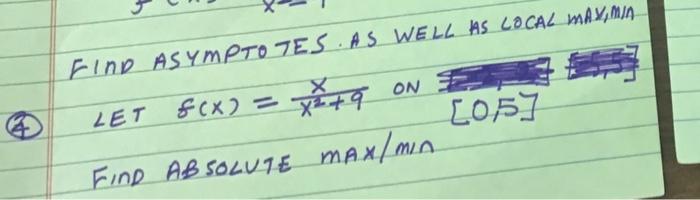 FIND ASYMPTOTES. AS WELL AS LOCAL MAX, MIN
④ LET f(x) = x/(x²+9) ON [0,5]
FIND ABSOLUTE MAX/MIN